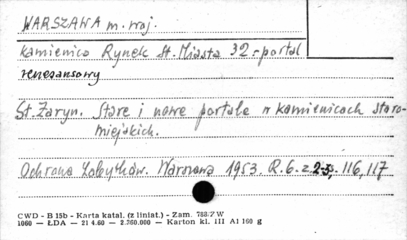 WARSZAWA m. woj.
Kamienica Rynek St. Miasta 32 - portal
renesansowy
St. Żaryn. Stare i nowe portale w kamienicach staro-
miejskich.
Ochrona Zabytków. Warszawa 1953. R.6. z. 2-3, s. 116, 117
CWD - B 15b - Karta katal. (z liniat.) - Zam. 788/Z W
1060 — ŁDA — 21 4.60 — 2.760.000 — Karton kl. III A1 160 g